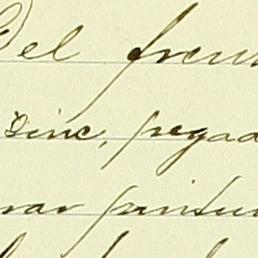 Del fren
zinc, pegad
nar pintu